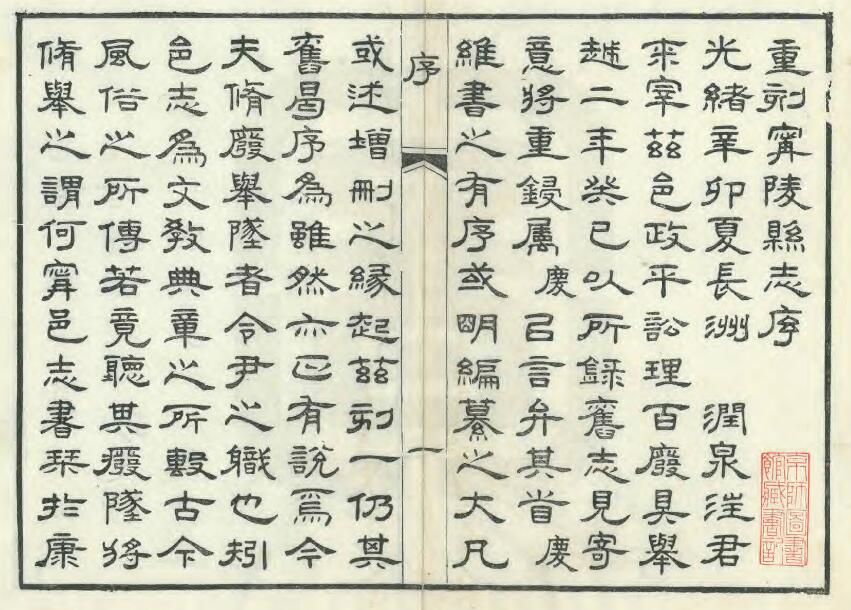 重刻甯陵縣志序
光緒辛卯夏長洲 潤泉汪君
來宰茲邑政平訟理百廢具舉
越二年癸巳以所錄舊志見寄
意將重鋟屬 慶 㠯言弁其耑 慶
維書之有序或明編纂之大凡
序 一
或述增刪之緣起茲刻一仍其
舊曷序為雖然亦正有說焉今
夫脩廢舉墜者令尹之職也矧
邑志為文教典章之所繫古今
風俗之所傳若竟聽其廢墜將
脩舉之謂何甯邑志書栞於康